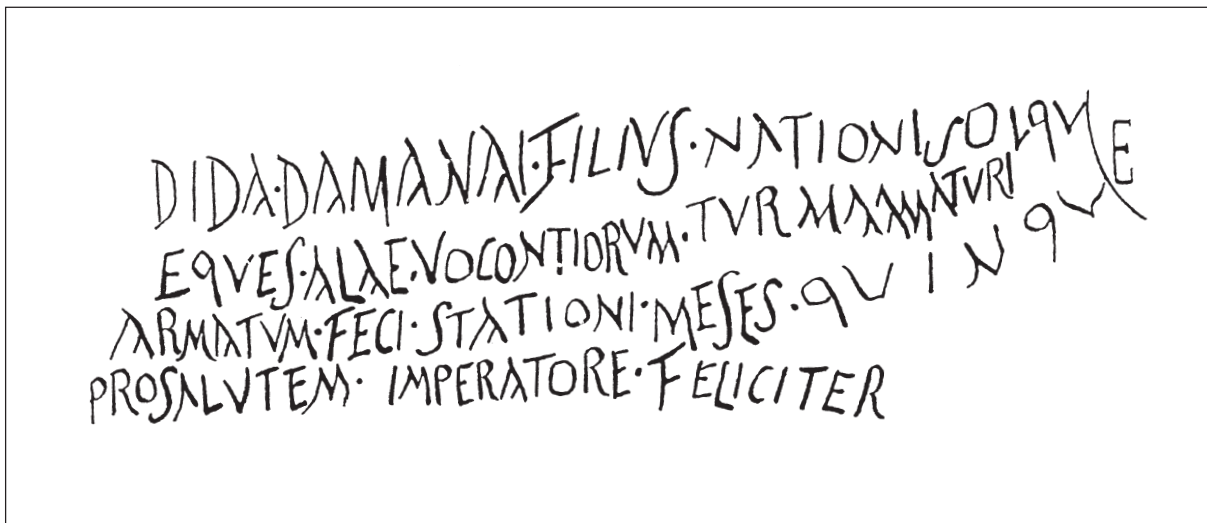 DIDA·DAMANAI·FILIVS·NATIONISOLQV
EQVES·ALAE·VOCONTIORVM·TVRMAAMATVRI
ARMATVM·FECI·STATIONI·MESES·QVINQVE
PROSALVTEM· IMPERATORE·FELICITER